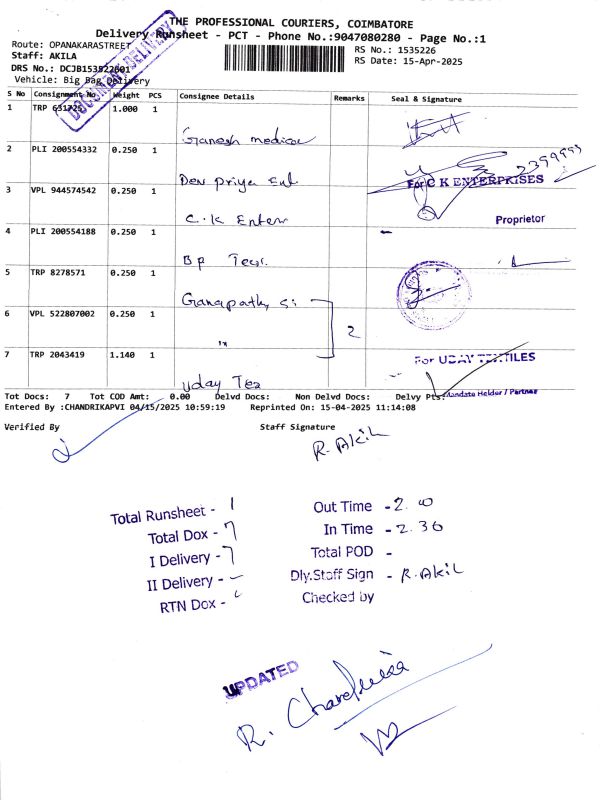 THE PROFESSIONAL COURIERS, COIMBATORE
Delivery Runsheet - PCT - Phone No.:9047080280 - Page No.:1
Route: OPANAKARASTREET
Staff: AKILA
DRS No.: DCJB153522601
Vehicle: Big Bag Delivery
RS No.: 1535226
RS Date: 15-Apr-2025
DOCUMENT DELIVERY
S No Consignment No. Weight PCS Consignee Details Remarks Seal & Signature
1 TRP 631725 1.000 1 Ganesh medical
2 PLI 200554332 0.250 1 Dev Priya Ent 2399993
For C K ENTERPRISES
3 VPL 944574542 0.250 1 C.K Enter
Proprietor
4 PLI 200554188 0.250 1 BP Tex.
5 TRP 8278571 0.250 1 Ganapathy Si
6 VPL 522807002 0.250 1 " 2
7 TRP 2043419 1.140 1 Uday Tex
For UDAY TEXTILES
Mandate Holder / Partner
Tot Docs: 7 Tot COD Amt: 0.00 Delvd Docs: Non Delvd Docs: Delvy Pts:
Entered By :CHANDRIKAPVI 04/15/2025 10:59:19 Reprinted On: 15-04-2025 11:14:08
Verified By Staff Signature
R. Akil
Total Runsheet - 1
Total Dox - 7
I Delivery - 7
II Delivery -
RTN Dox -
Out Time - 2.00
In Time - 2.30
Total POD -
Dly.Staff Sign - R. Akil
Checked by
UPDATED
R. Chandrika